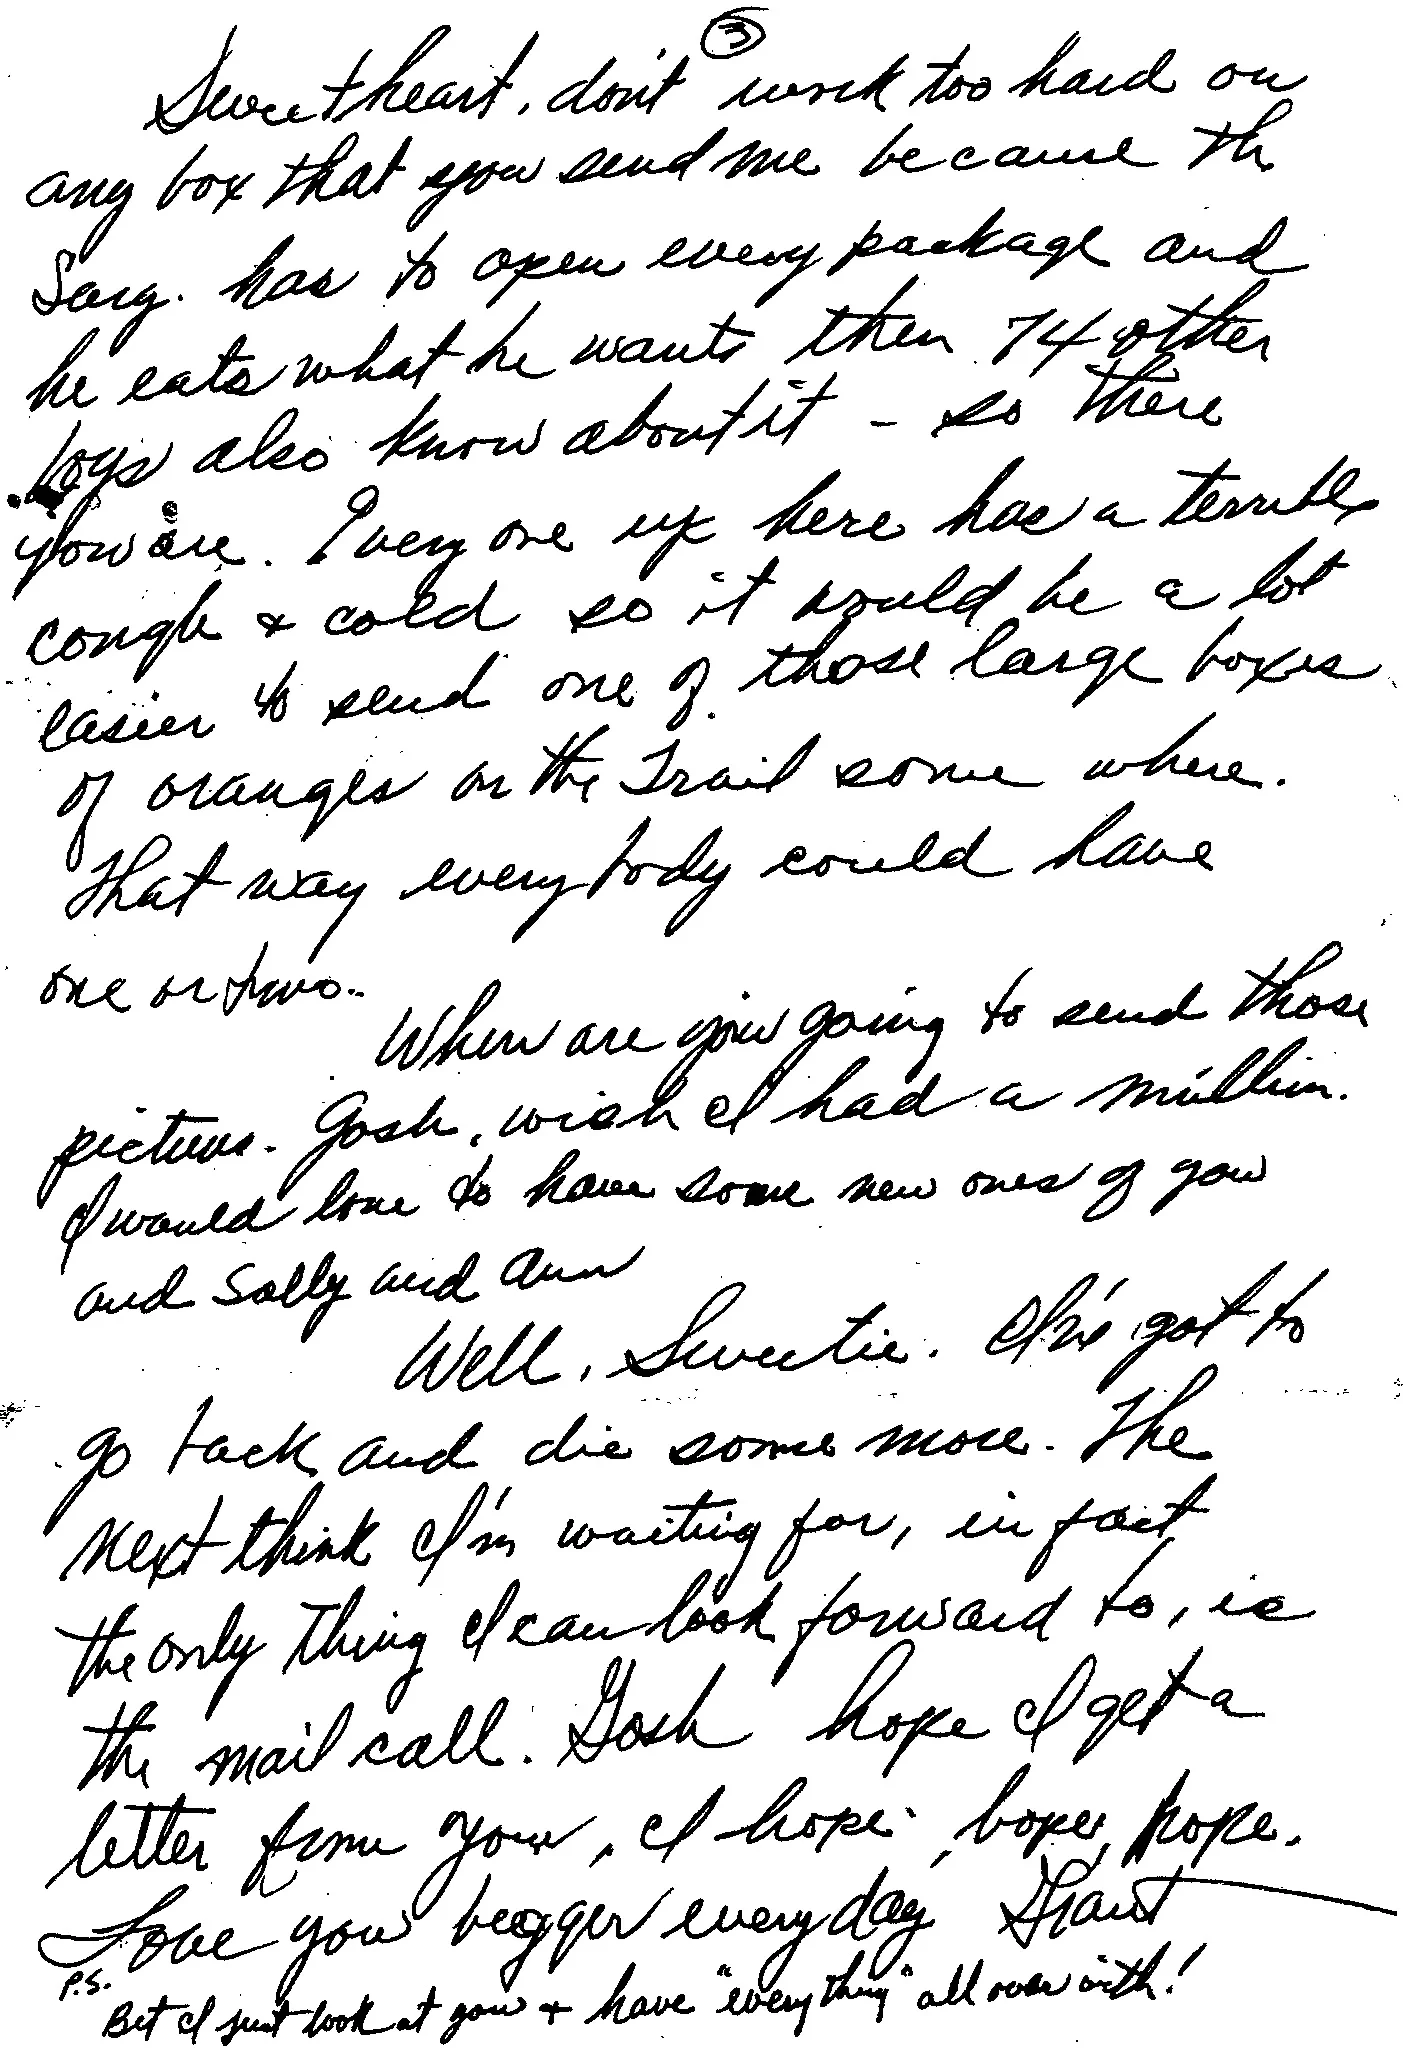 3
Sweetheart, don't work too hard on
any box that you send me because th
Sarg. has to open every package and
he eats what he wants then 74 other
boys also know about it - so there
you are. Everyone up here has a terrible
cough & cold so it would be a lot
easier to send one of those large boxes
of oranges on the Trail some where.
That way everybody could have
one or two..
When are you going to send those
pictures. Gosh, wish I had a million.
I would love to have some new ones of you
and Sally and Ann
Well, Sweetie. I've got to
go back and die some more. The
next think I'm waiting for, in fact
the only thing I can look forward to, is
the mail call. Gosh hope I get a
letter from you, I hope, hope, hope.
Love you begger everyday Grant
P.S.
Bet I just look at you & have "everything" all over with!